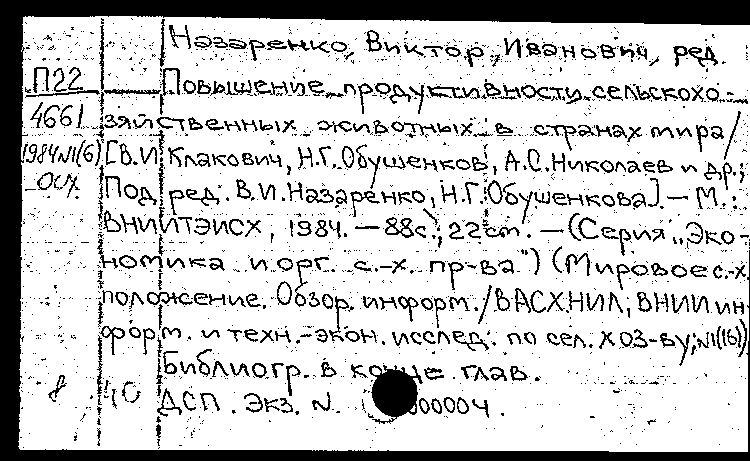 Назаренко, Виктор, Иванович, ред.
П22 Повышение продуктивности сельскохо-
4661 зяйственных животных в странах мира/
1984№1(6) [В.И. Клакович, Н.Г. Обушенков, А.С. Николаев и др.;
Под ред. В.И. Назаренко, Н.Г. Обушенкова]. — М.:
ВНИИТЭИСХ, 1984. — 88с., 22см. — (Серия „Эко-
номика и орг. с.-х. пр-ва") (Мировое с.-х.
положение. Обзор. информ./ВАСХНИЛ, ВНИИ ин-
форм. и техн.-экон. исслед. по сел. хоз-ву; №1(16))
Библиогр. в конце глав.
8 40 ДСП. Экз. N 000004.